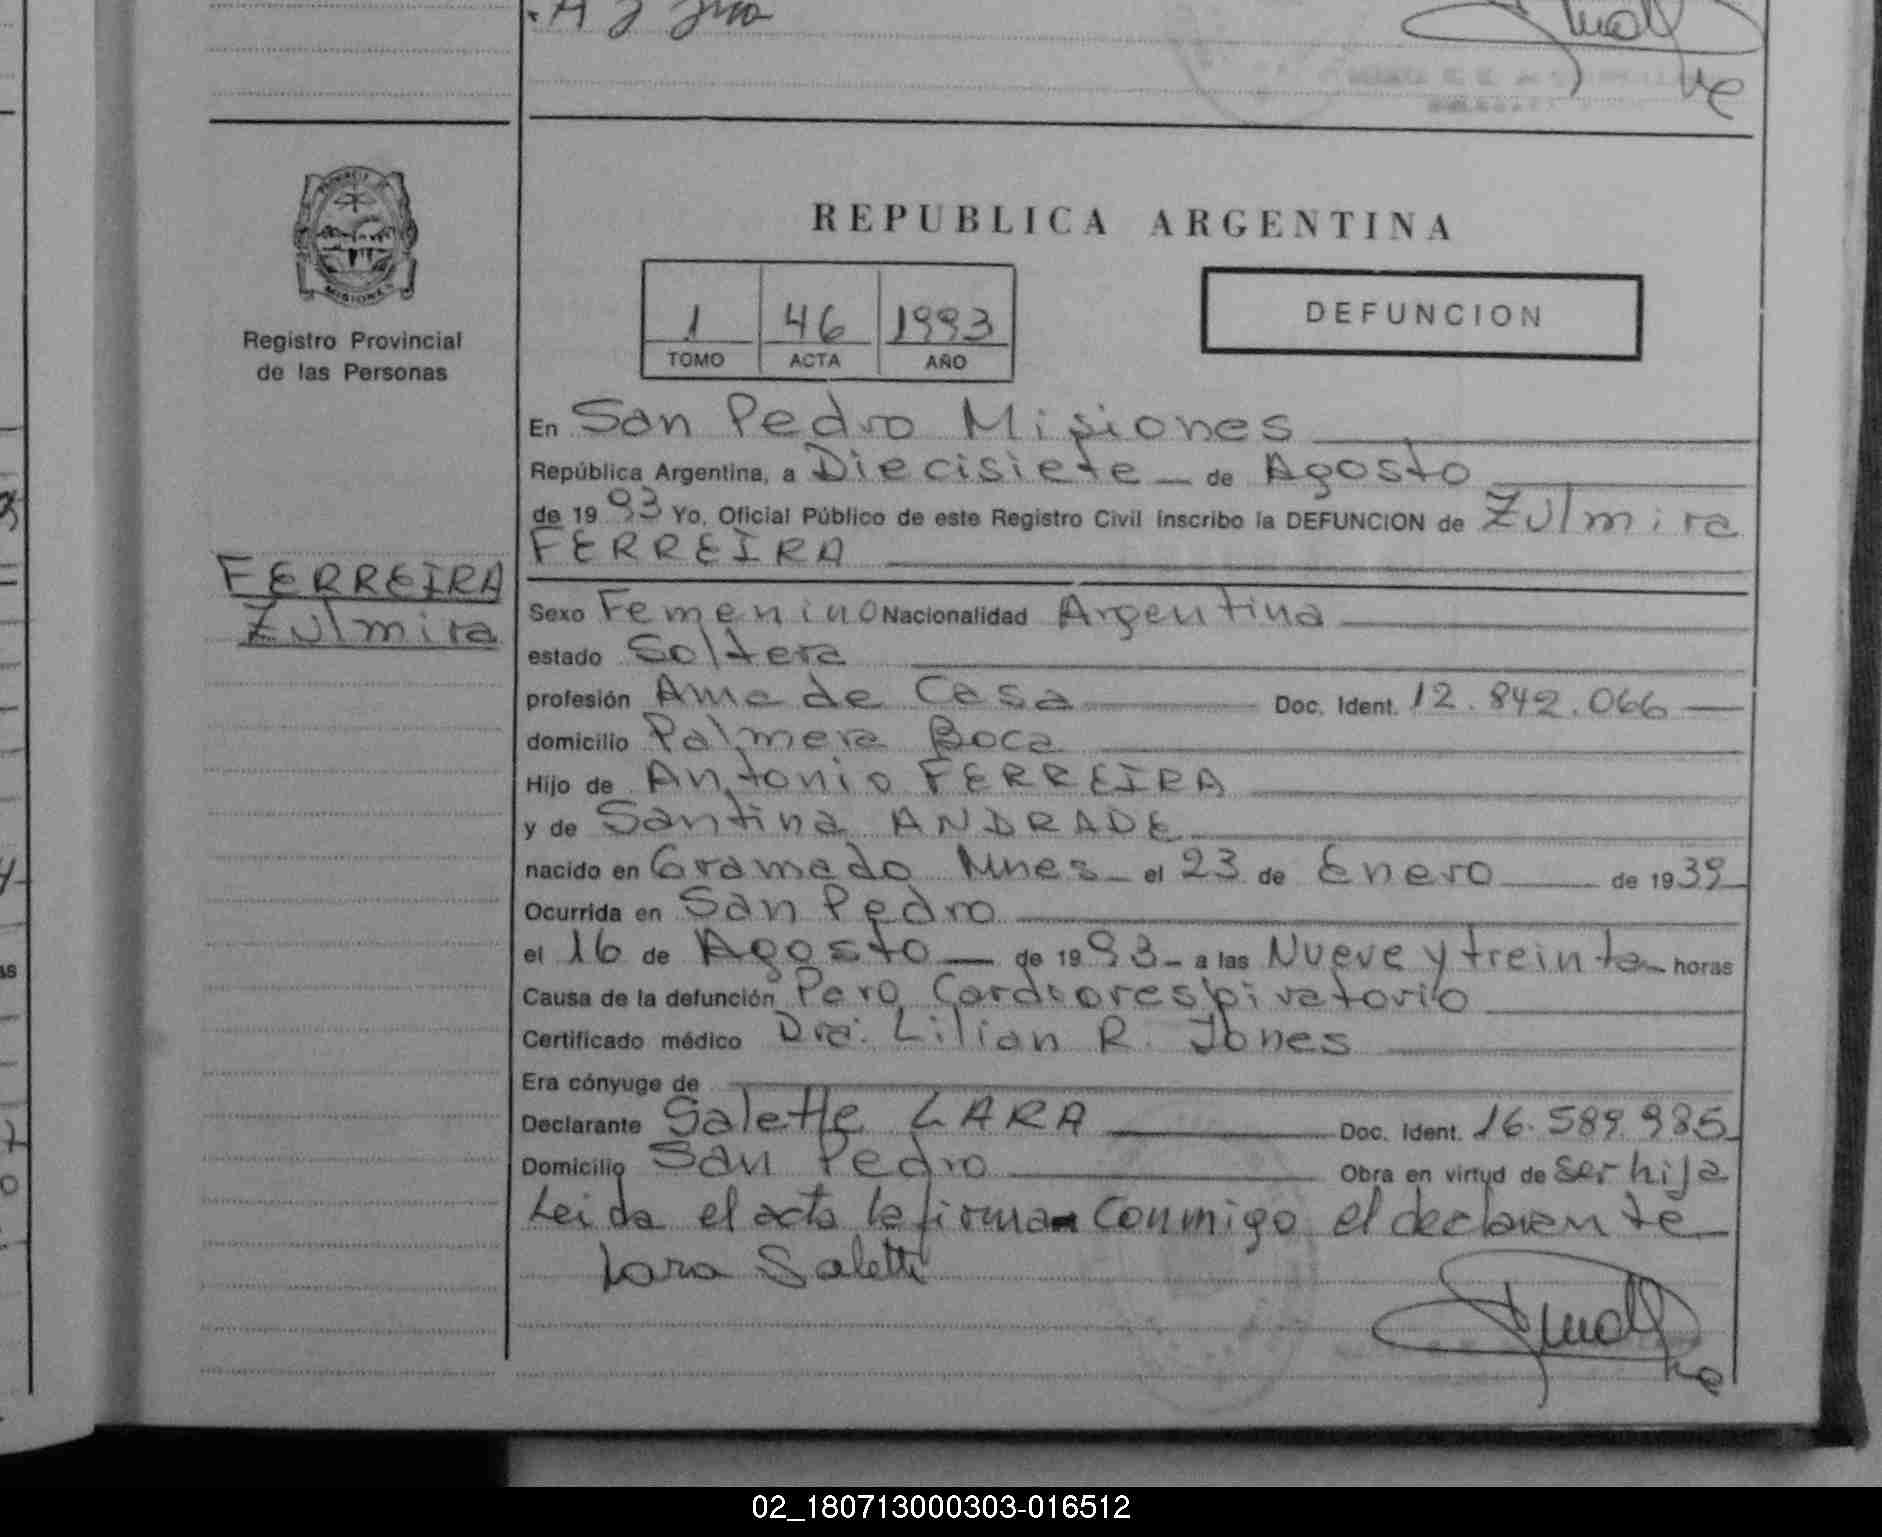 REPUBLICA ARGENTINA
Registro Provincial
de las Personas
1 46 1993
TOMO ACTA AÑO
DEFUNCION
En San Pedro Misiones
República Argentina, a Diecisiete de Agosto
de 19 93 Yo, Oficial Público de este Registro Civil inscribo la DEFUNCION de Zulmira
FERREIRA
FERREIRA
Zulmira
Sexo Femenino Nacionalidad Argentina
estado Soltera
profesión Ama de Casa Doc. Ident. 12.842.066
domicilio Palmera Boca
Hijo de Antonio FERREIRA
y de Santina ANDRADE
nacido en Gramado Mnes el 23 de Enero de 1939
Ocurrida en San Pedro
el 16 de Agosto de 1993 a las Nueve y treinta horas
Causa de la defunción Paro Cardiorespiratorio
Certificado médico Dra. Lilian R. Jones
Era cónyuge de
Declarante Salette LARA Doc. Ident. 16.589.985
Domicilio San Pedro Obra en virtud de ser hija
Leida el acta la firma Conmigo el declarante
Lara Salette
02_180713000303-016512